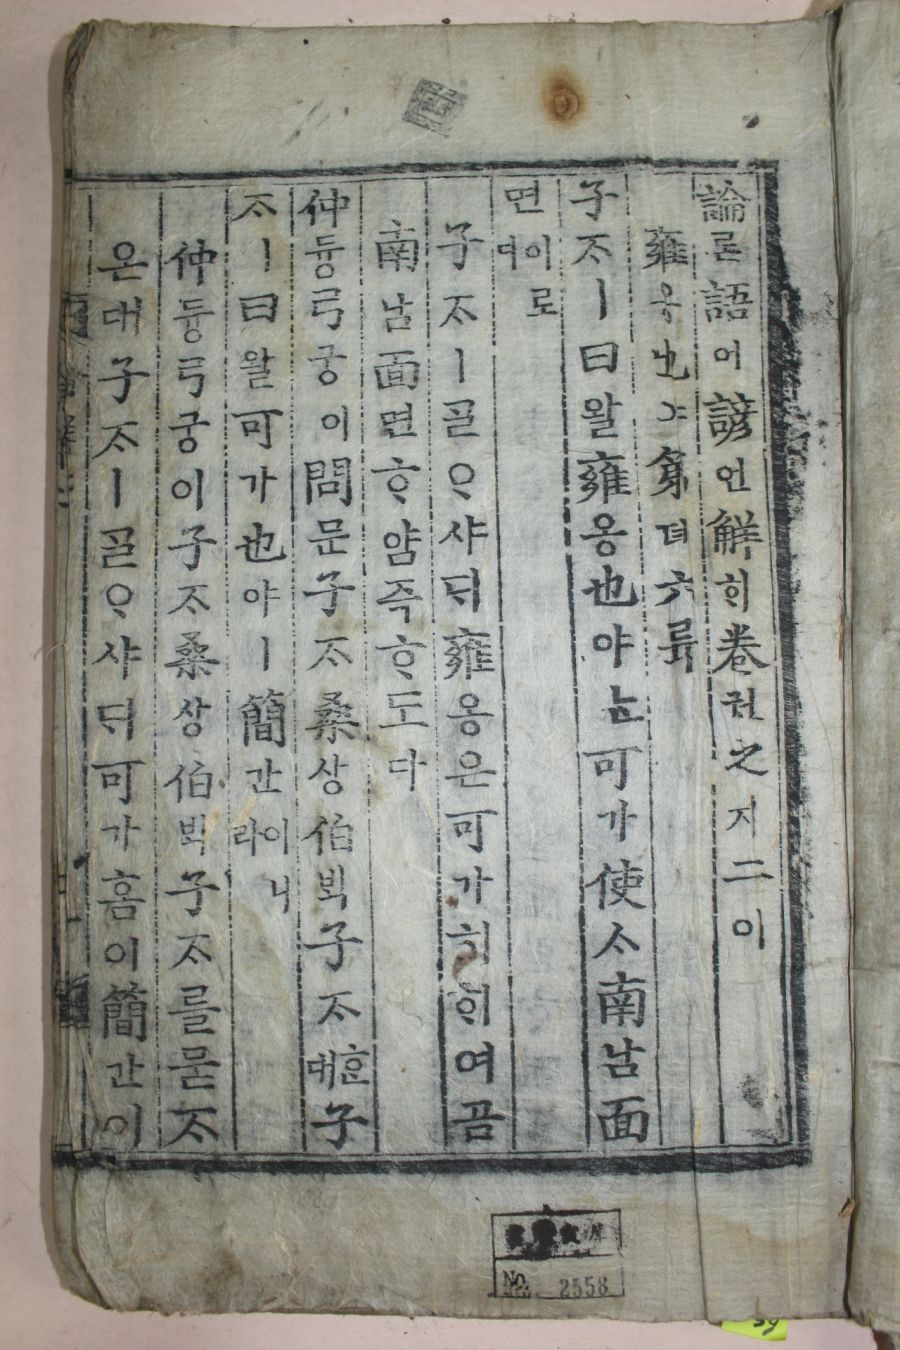 論론語어諺언觧ᄒᆡ卷권之지二이
雍옹也야第뎨六륙
子ᄌᆞㅣ曰왈雍옹也야ᄂᆞᆫ可가使ᄉᆞ南남面
면이로다
子ᄌᆞㅣᄀᆞᆯᄋᆞ샤ᄃᆡ雍옹은可가히ᄒᆡ여곰
南남面면ᄒᆞ얌즉ᄒᆞ도다
仲듕弓궁이問문子ᄌᆞ桑상伯ᄇᆡᆨ子ᄌᆞᄒᆞᆫ대子
ᄌᆞㅣ曰왈可가也야ㅣ簡간이니라
仲듕弓궁이子ᄌᆞ桑상伯ᄇᆡᆨ子ᄌᆞ를묻ᄌᆞ
온대子ᄌᆞㅣᄀᆞᆯᄋᆞ샤ᄃᆡ可가홈이簡간이
No. 2558